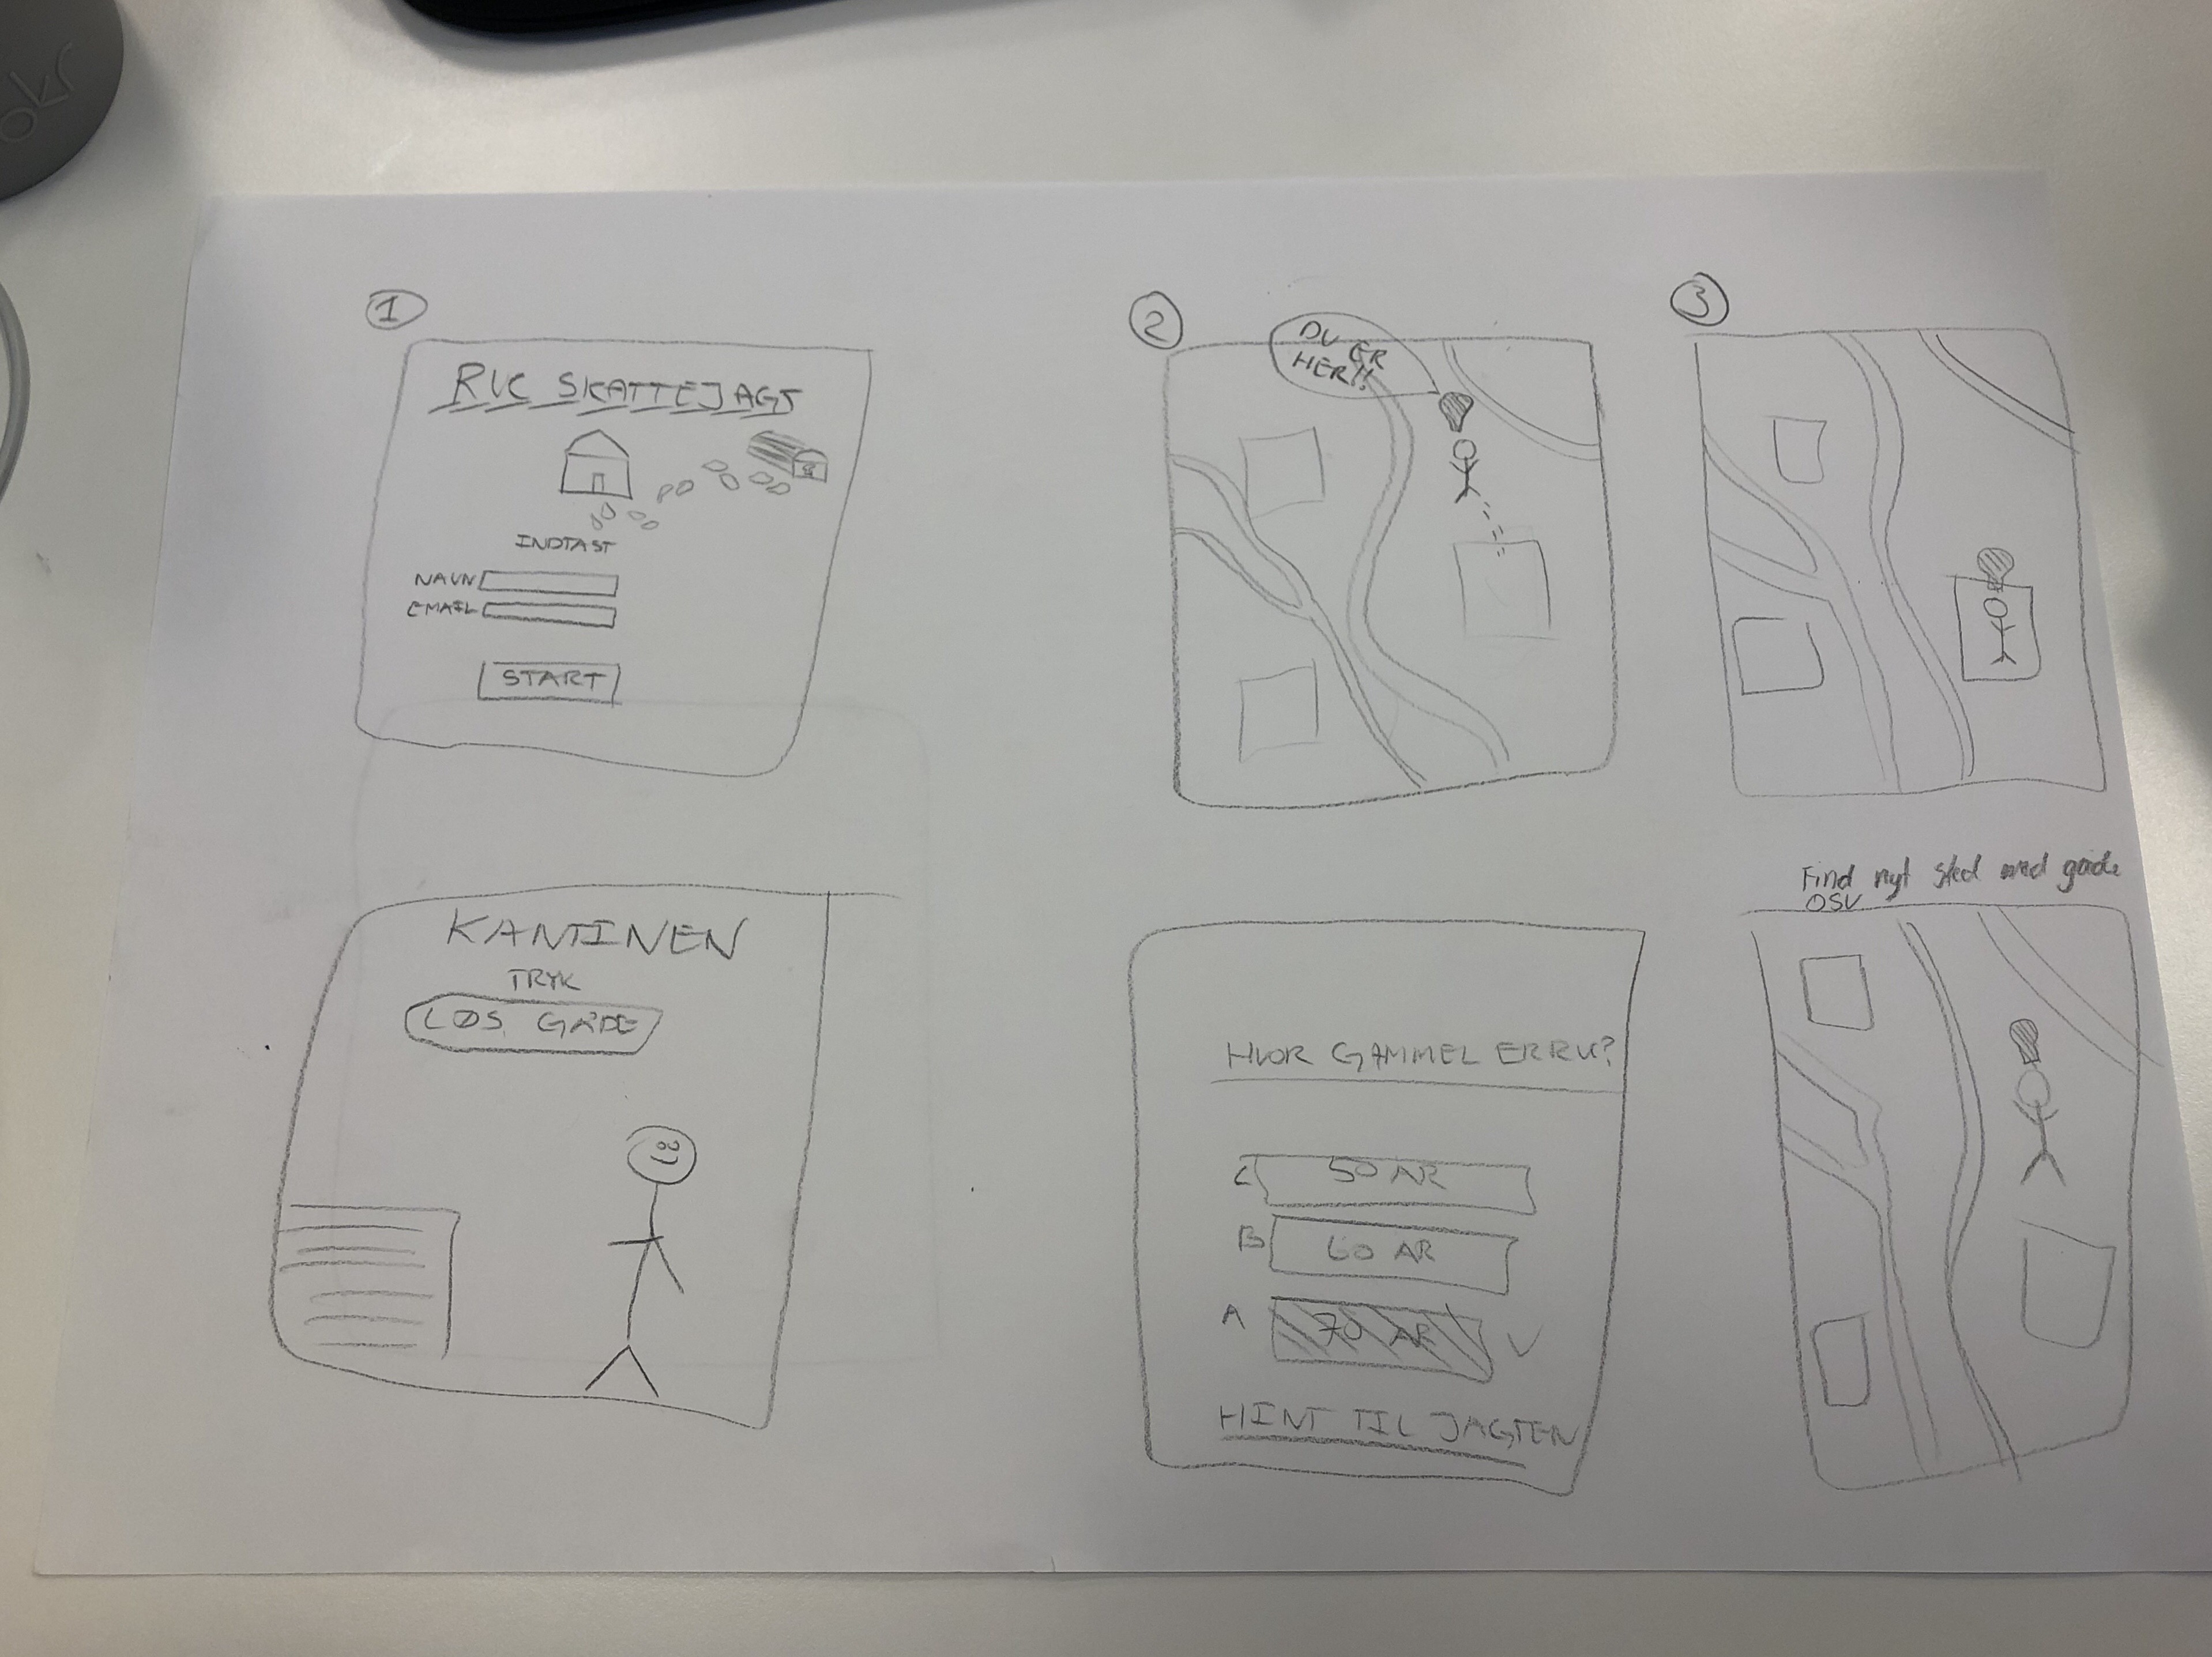 okr
1
RUC SKATTEJAGT
INDTAST
NAVN
EMAIL
START
2
DU ER
HER!!
3
KANTINEN
TRYK
LØS GÅDE
HVOR GAMMEL ER RUC?
C 50 ÅR
B 60 ÅR
A 70 ÅR
HINT TIL JAGTEN
Find nyt sted med gåde
OSV